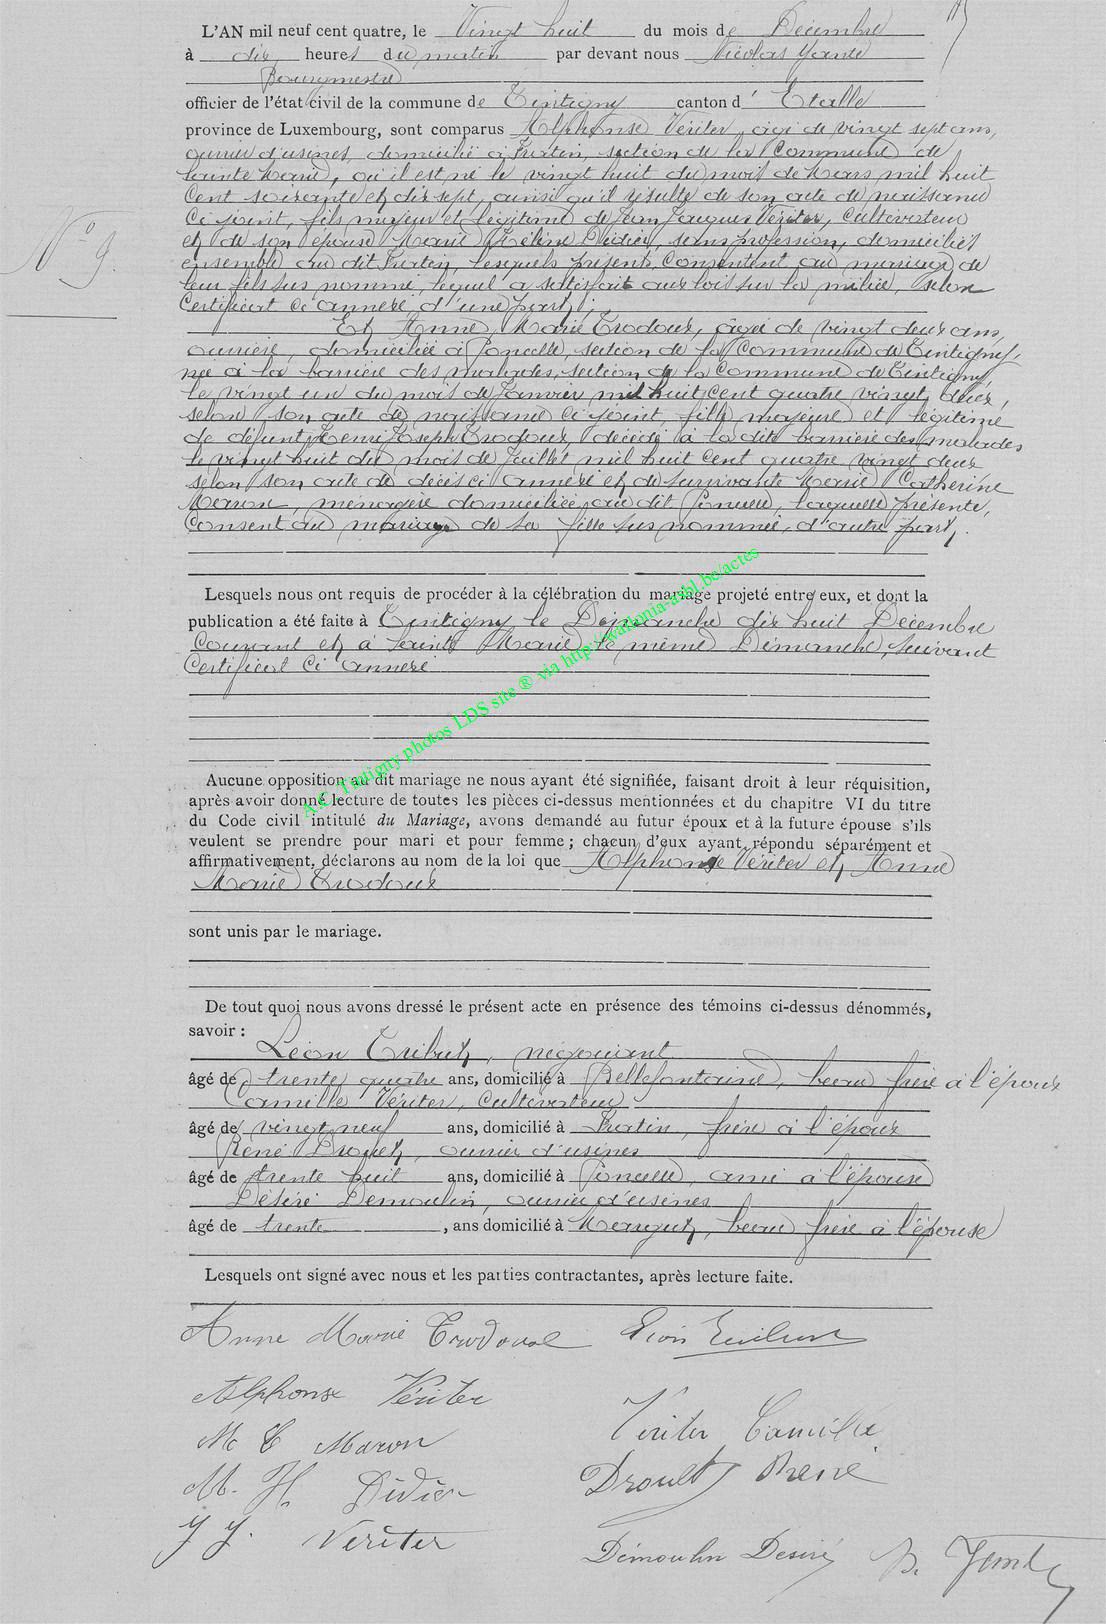 L'AN mil neuf cent quatre, le Vingt huit du mois de Décembre
à dix heures du matin par devant nous Nicolas Yante
Bourgmestre
officier de l'état civil de la commune de Tintigny canton d'Etalle
province de Luxembourg, sont comparus Alphonse Vériter, agé de vingt sept ans,
ouvrier d'usines, domicilié à Fratin, section de la Commune de
Sainte Marie, où il est né le vingt huit du mois de Mars mil huit
Cent soixante et dix sept, ainsi qu'il résulte de son acte de naissance
Ci joint, fils majeur et légitime de Jean Jacques Vériter, Cultivateur
et de son épouse Marie Didier, sans profession, domiciliés
ensemble au dit Fratin, lesquels présents Consentent au mariage de
leur fils sus nommé, lequel a satisfait aux lois sur la milice, selon
Certificat ci annexé d'une part;
N° 9.
Et Anne Marie Trodoux, agée de vingt deux ans,
ouvrière, domiciliée à Poncelle, section de la Commune de Tintigny,
née à la barrière des malades, section de la Commune de Tintigny,
le vingt un du mois de Janvier mil huit cent quatre vingt deux,
selon son acte de naissance ci joint, fille majeure et légitime
de défunt Henri Joseph Trodoux, décédé à la dite barrière des malades
le vingt huit du mois de Juillet mil huit cent quatre vingt deux
selon son acte de décès ci annexé et de survivante Marie Catherine
Maron, ménagère domiciliée au dit Poncelle, laquelle présente,
Consent au mariage de sa fille sus nommée, d'autre part,
Lesquels nous ont requis de procéder à la célébration du mariage projeté entre eux, et dont la
publication a été faite à Tintigny le Dimanche dix huit Décembre
Courant et à Sainte Marie le même Dimanche, suivant
Certificat ci annexé
A.C. Tintigny photos LDS site ® via http://wallonia-asbl.be/actes
Aucune opposition au dit mariage ne nous ayant été signifiée, faisant droit à leur réquisition,
après avoir donné lecture de toutes les pièces ci-dessus mentionnées et du chapitre VI du titre
du Code civil intitulé du Mariage, avons demandé au futur époux et à la future épouse s'ils
veulent se prendre pour mari et pour femme; chacun d'eux ayant répondu séparément et
affirmativement, déclarons au nom de la loi que Alphonse Vériter et Anne
Marie Trodoux
sont unis par le mariage.
De tout quoi nous avons dressé le présent acte en présence des témoins ci-dessus dénommés,
savoir :
Léon Tribut, négociant
âgé de trente quatre ans, domicilié à Bellefontaine, beau frère à l'époux
Camille Vériter, Cultivateur
âgé de vingt neuf ans, domicilié à Fratin, frère à l'époux
René Drouet, ouvrier d'usines
âgé de trente huit ans, domicilié à Poncelle, ami à l'épouse
Désiré Demoulin, ouvrier d'usines
âgé de trente, ans domicilié à beau frère à l'épouse
Lesquels ont signé avec nous et les parties contractantes, après lecture faite.
Anne Marie Trodoux Léon
Alphonse Vériter
Vériter Camille
M C Maron
M. H. Didier
Drouet René
J J. Veriter
Démoulin Desiré N. Yante